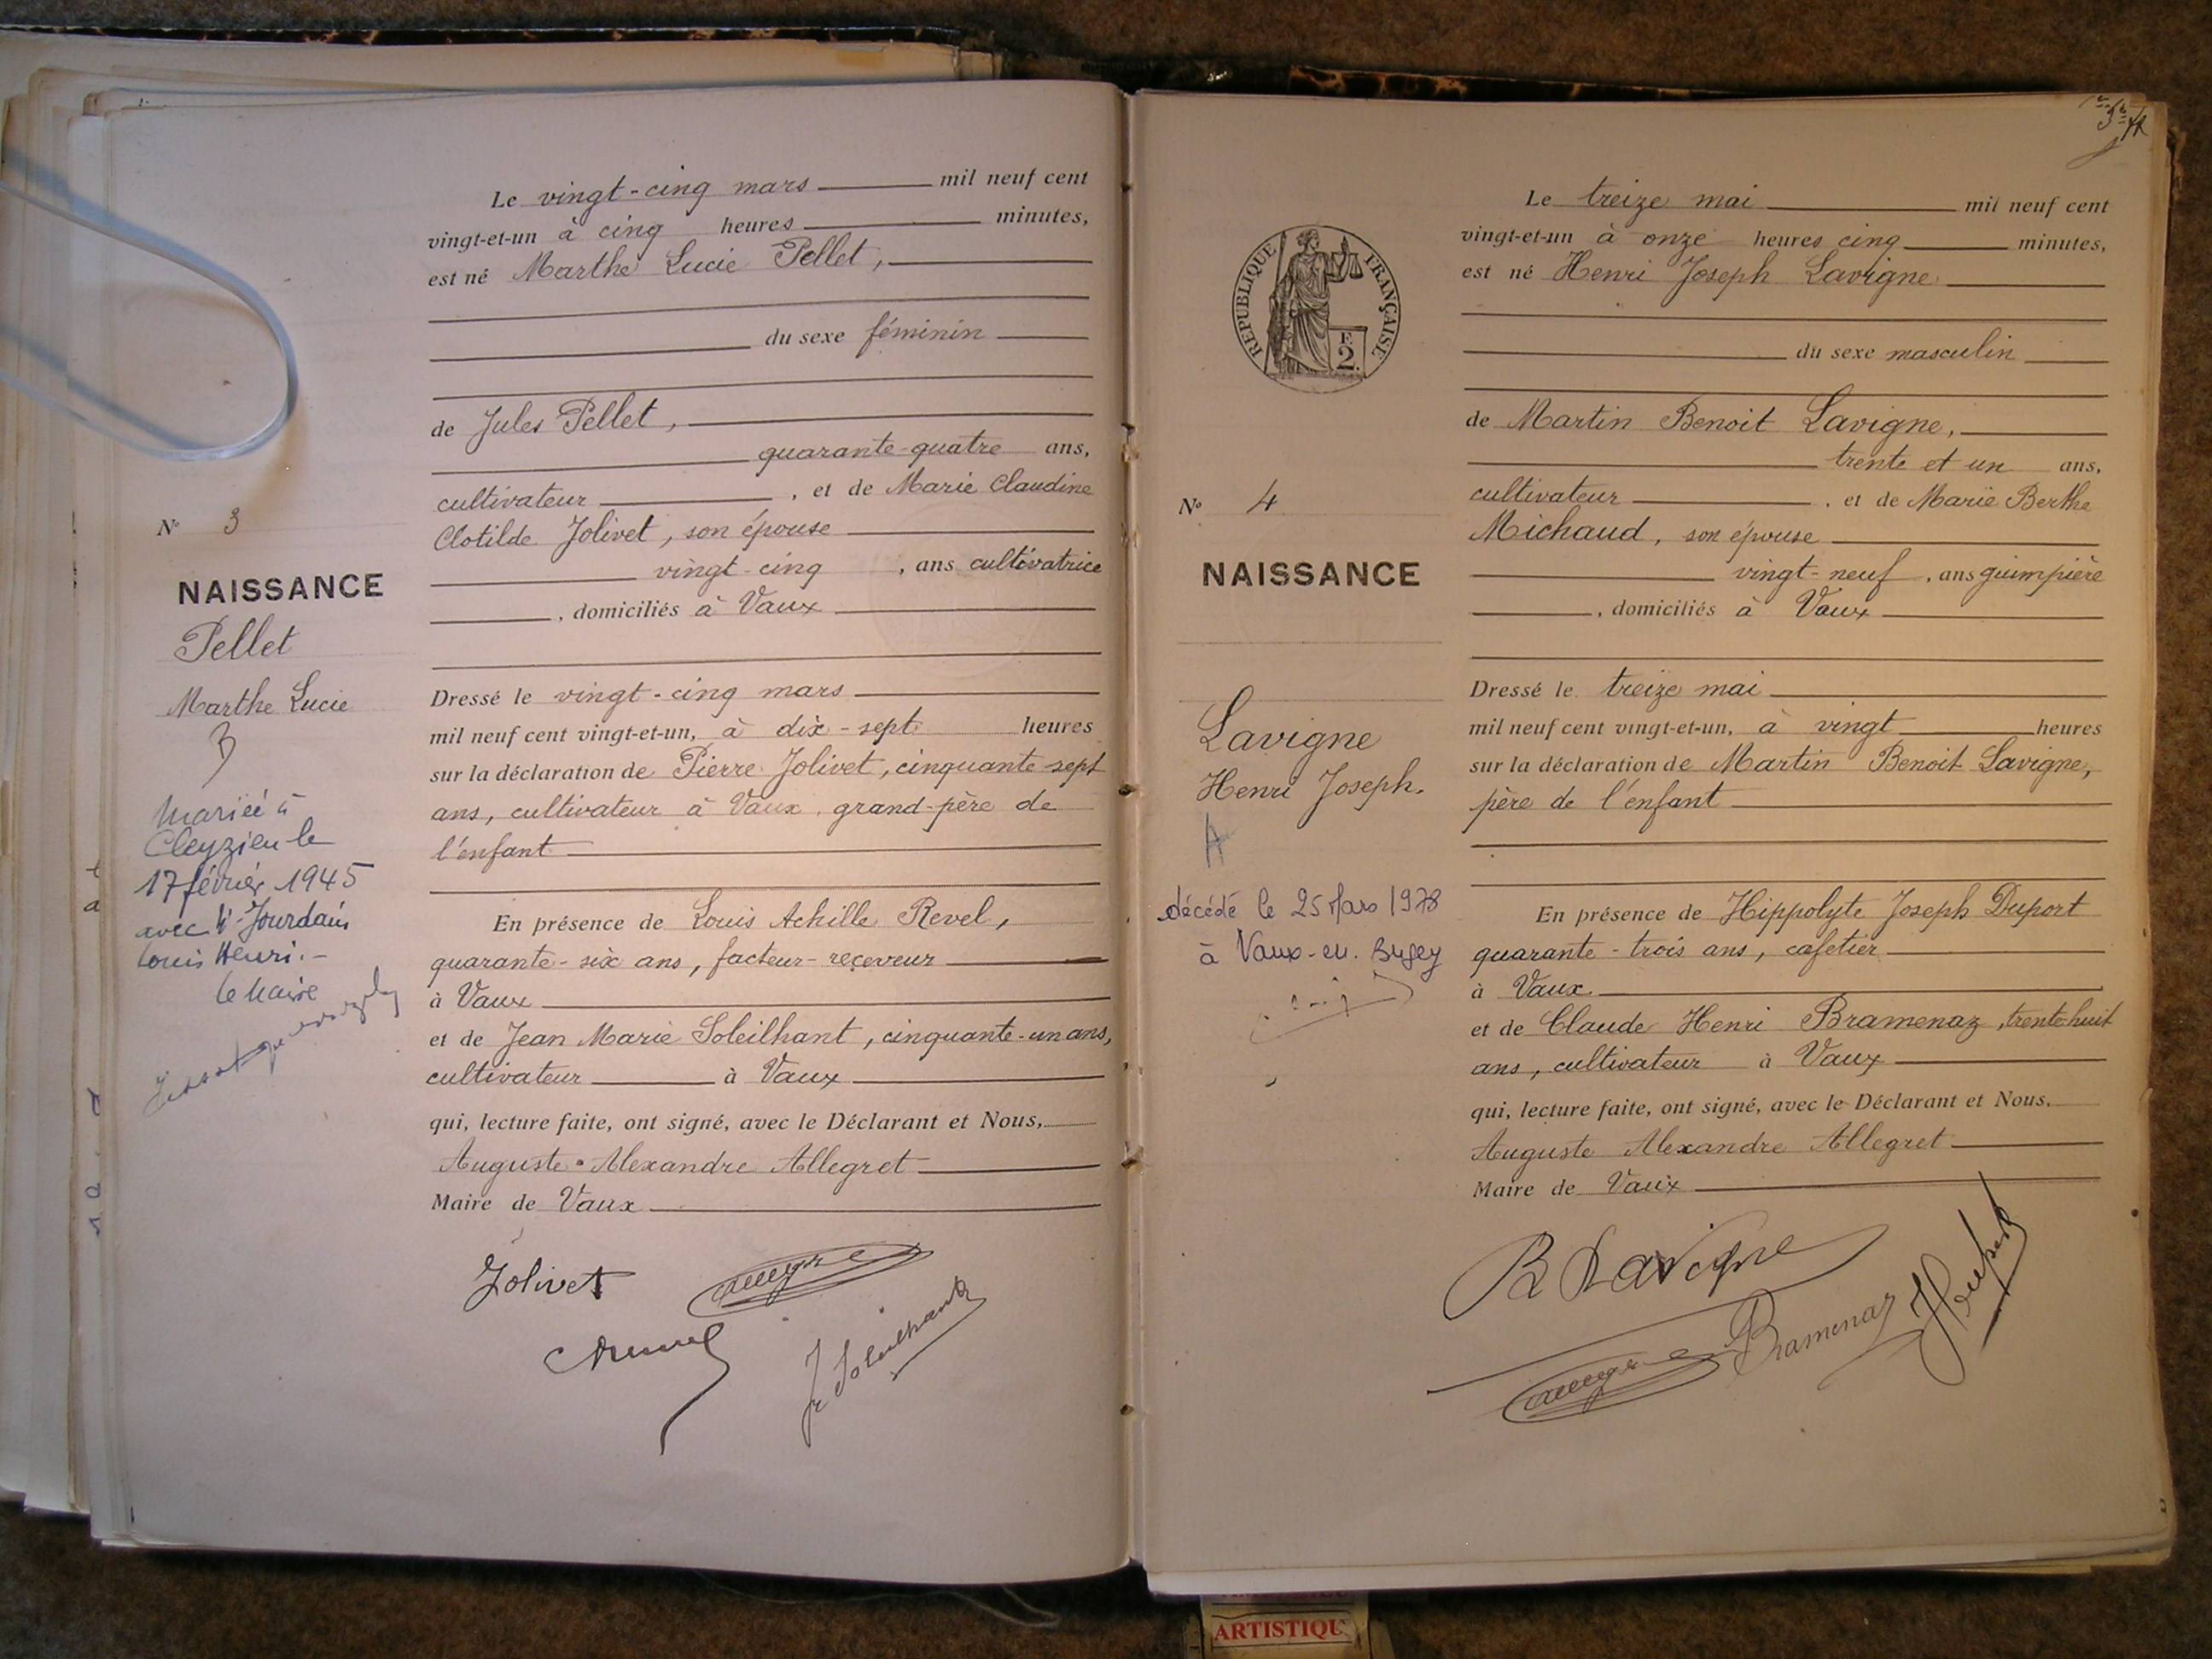 Le vingt-cinq mars mil neuf cent
vingt-et-un à cinq heures minutes,
est né Marthe Lucie Pellet,
du sexe féminin
de Jules Pellet,
quarante-quatre ans,
cultivateur, et de Marie Claudine
Clotilde Jolivet, son épouse
vingt-cinq, ans cultivatrice
, domiciliés à Vaux
Dressé le vingt-cinq mars
mil neuf cent vingt-et-un, à dix-sept heures
sur la déclaration de Pierre Jolivet, cinquante-sept
ans, cultivateur à Vaux, grand-père de
l'enfant
En présence de Louis Achille Revel,
quarante-six ans, facteur-receveur
à Vaux
et de Jean Marie Soleilhant, cinquante-un ans,
cultivateur à Vaux
qui, lecture faite, ont signé, avec le Déclarant et Nous,
Auguste Alexandre Allegret
Maire de Vaux
Jolivet
Jr Soleilhant
N° 3
NAISSANCE
Pellet
Marthe Lucie
B
Mariée à
Cleyzieu le
17 février 1945
avec Jourdain
Louis Henri.-
le Maire
Le treize mai mil neuf cent
vingt-et-un à onze heures cinq minutes,
est né Henri Joseph Lavigne
du sexe masculin
de Martin Benoit Lavigne,
trente et un ans,
cultivateur, et de Marie Berthe
Michaud, son épouse
vingt-neuf, ans guimpière
, domiciliés à Vaux
Dressé le treize mai
mil neuf cent vingt-et-un, à vingt heures
sur la déclaration de Martin Benoit Lavigne,
père de l'enfant
En présence de Hippolyte Joseph Duport
quarante-trois ans, cafetier
à Vaux
et de Claude Henri Bramenaz, trente-huit
ans, cultivateur à Vaux
qui, lecture faite, ont signé, avec le Déclarant et Nous,
Auguste Alexandre Allegret
Maire de Vaux
B Lavigne
Bramenaz
REPUBLIQUE FRANÇAISE
F.
2.
N° 4
NAISSANCE
Lavigne
Henri Joseph.
A
décédé le 25 Mars 1978
à Vaux-en-Bugey
ARTISTIQU